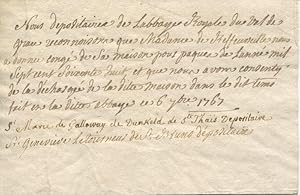 Nous depositaires de Labbaÿe Royalle du val de
grace reconnoissons que Madame de
a donné congé de sa maison pour paque de Lannée mil
sept cent soixante huit, et que nous y avons consenty
de la décharger de la ditte maison dans le dit tems
fait en la ditte abbaÿe ce 6 7bre 1767
Sr Marie de Galloway de Dunkeld de St Thaïs Depositaire
Sr Genevieve Letourneus de St Bruno dépositaire